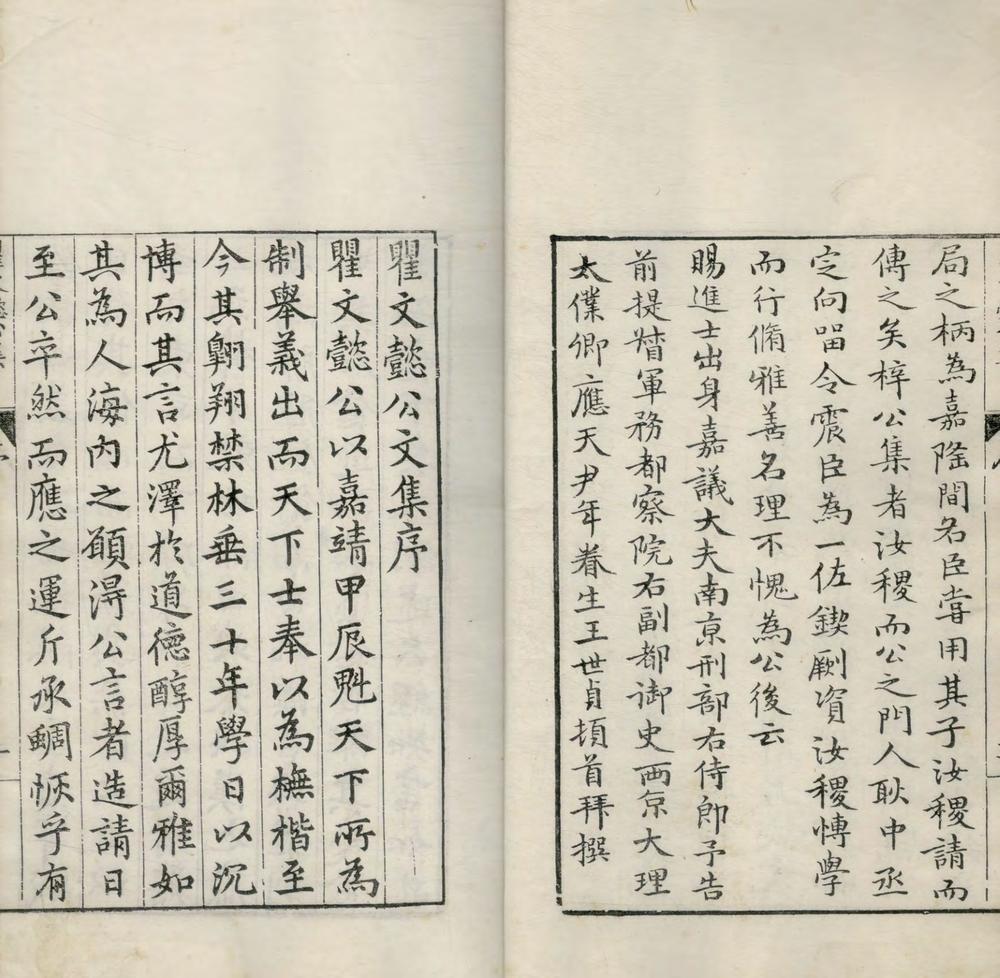 局之柄為嘉隆間名臣嘗用其子汝稷請而
傳之矣梓公集者汝稷而公之門人耿中丞
定向畱令震臣為一佐鍥劂資汝稷愽學
而行脩雅善名理不愧為公後云
賜進士出身嘉議大夫南京刑部右侍郎予告
前提督軍務都察院右副都御史兩京大理
太僕卿應天尹年眷生王世貞頓首拜撰
瞿文懿公文集序
瞿文懿公以嘉靖甲辰魁天下所為
制舉義出而天下士奉以為橅楷至
今其翺翔禁林垂三十年學日以沉
博而其言尤澤於道德醇厚爾雅如
其為人海內之願得公言者造請日
至公卒然而應之運斤承蜩恢乎有